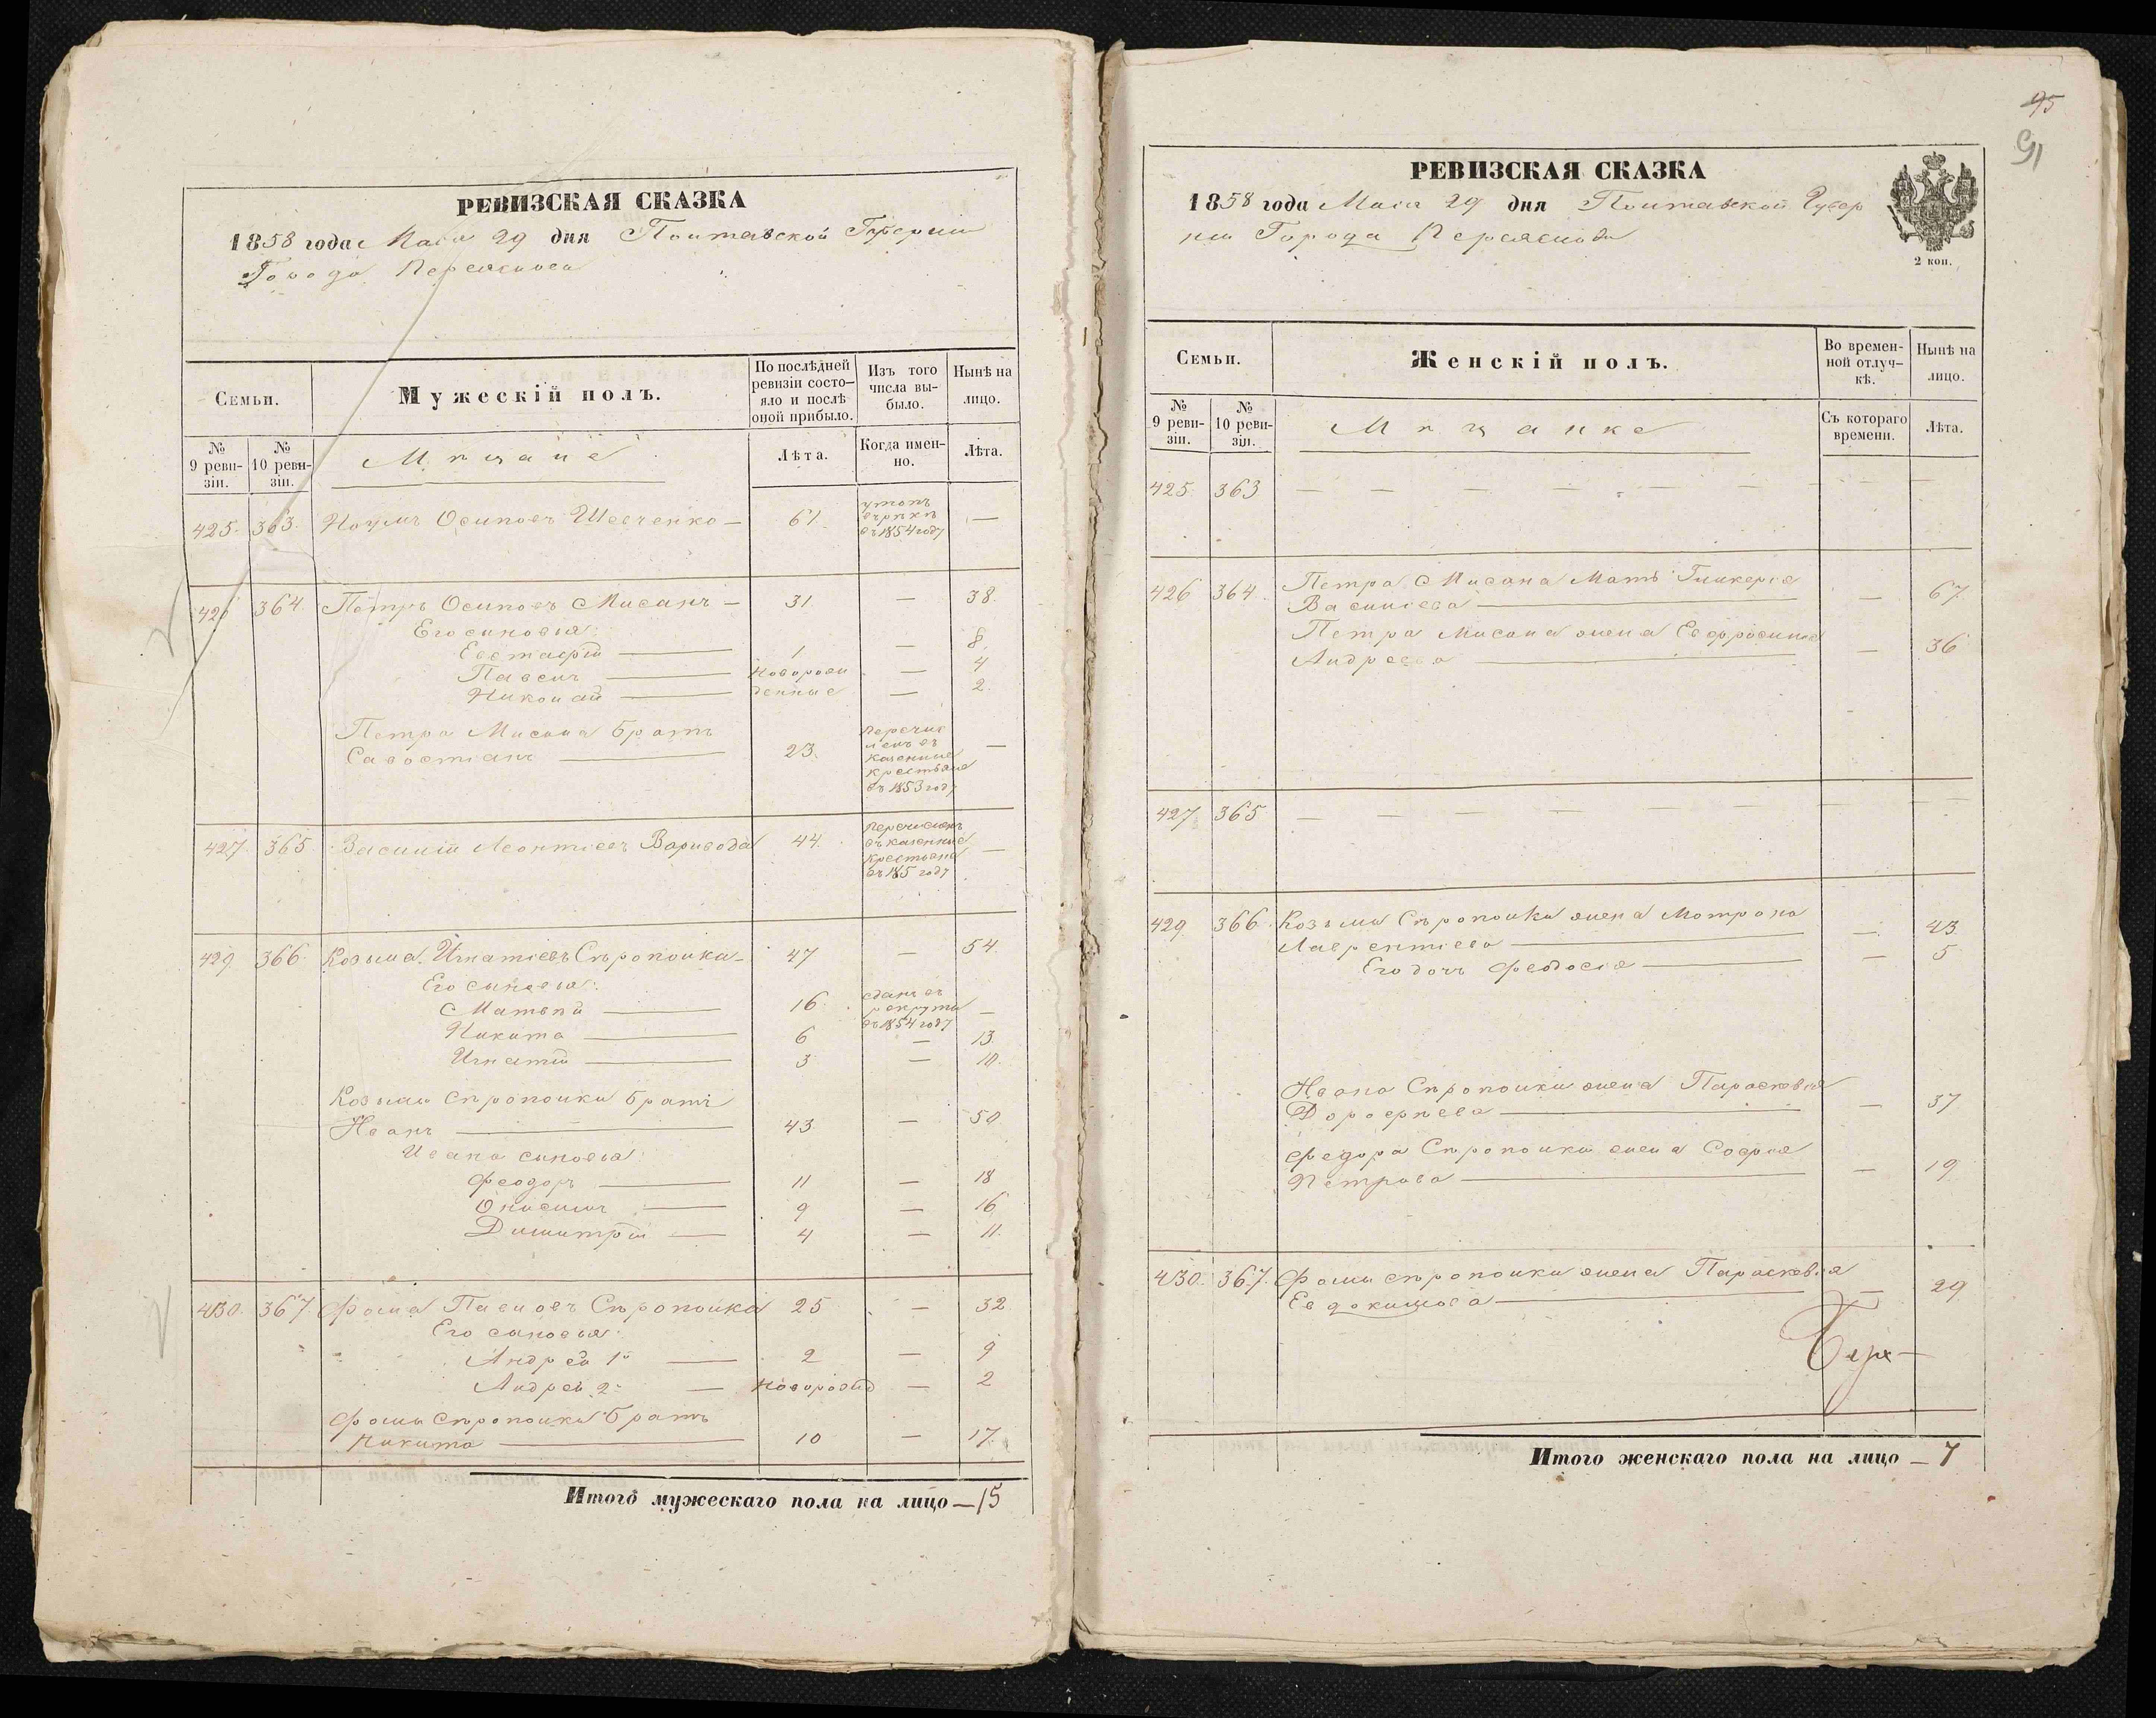 РЕВИЗСКАЯ СКАЗКА
1858 года Маія 29 дня Полтавской Губерніи
Города Переяслова
Семьи.
Мужескій полъ.
По послѣдней ревизіи состо-
яло и послѣ
оной прибыло.
Изъ того
числа вы-
было.
Нынѣ на
лицо.
№
9 реви-
зіи.
№
10 реви-
зіи.
Мѣщане
Лѣта.
Когда имен-
но.
Лѣта.
425. 363. Наумъ Осиповъ Шевченко — 61. утопъ —
въ 1854 году
426 364. Петръ Осиповъ Мисанъ — 31. — 38.
Его сыновья:
Евстафій — 1 — 8.
Павелъ — Новорож — 4
Николай — денные — 2.
Петра Мисана братъ
Савостіанъ — 23. перечис
ленъ въ —
казенные
крестьяне
въ 1853 году
427. 365. Василій Леонтіевъ Варивода 44. перечисленъ
въ казенные —
крестьяне
въ 185 году
429. 366. Козьма Игнатіевъ Сѣрополка — 47 — 54.
Его сыновья:
Матвѣй — 16. сданъ въ
рекруты —
въ 1854 году
Никита — 6 — 13.
Игнатій — 3 — 10.
Козьмы Сѣрополки братъ
Иванъ — 43. — 50
Ивана сыновья:
Феодоръ — 11 — 18
Онисимъ — 9 — 16
Димитрій — 4 — 11.
430. 367 Фома Павловъ Сѣрополка 25 — 32
Его сыновья:
Андрей 1й — 2 — 9
Андрей 2й — Новорожд — 2
Фомы Сѣрополки братъ
Никита — 10 — 17.
Итого мужескаго пола на лицо — 15
95
91
РЕВИЗСКАЯ СКАЗКА
1858 года Маія 29 дня Полтавской Губер
ніи Города Переяслова
2 коп.
Семьи.
Женскій полъ.
Во времен-
ной отлуч-
кѣ.
Нынѣ на
лицо.
№
9 реви-
зіи.
№
10 реви-
зіи.
Мѣщанке
Съ котораго
времени.
Лѣта.
425. 363 — — — — — — — — —
426 364. Петра Мисана мать Гликерія
Василіева — — 67.
Петра Мисана жена Евфросинія
Андреева — — 36
427. 365 — — — — — — — — —
429. 366. Козьмы Сѣрополки жена Мотрона
Лаврентіева — — 43
Его дочь Феодосія — — 5
Ивана Сѣрополки жена Параскевія
Дорофѣева — — 37
Федора Сѣрополки жена Софія
Петрова — — 19
430. 367. Фомы Сѣрополки жена Параскевія
Евдокимова — — 29
Итого женскаго пола на лицо — 7